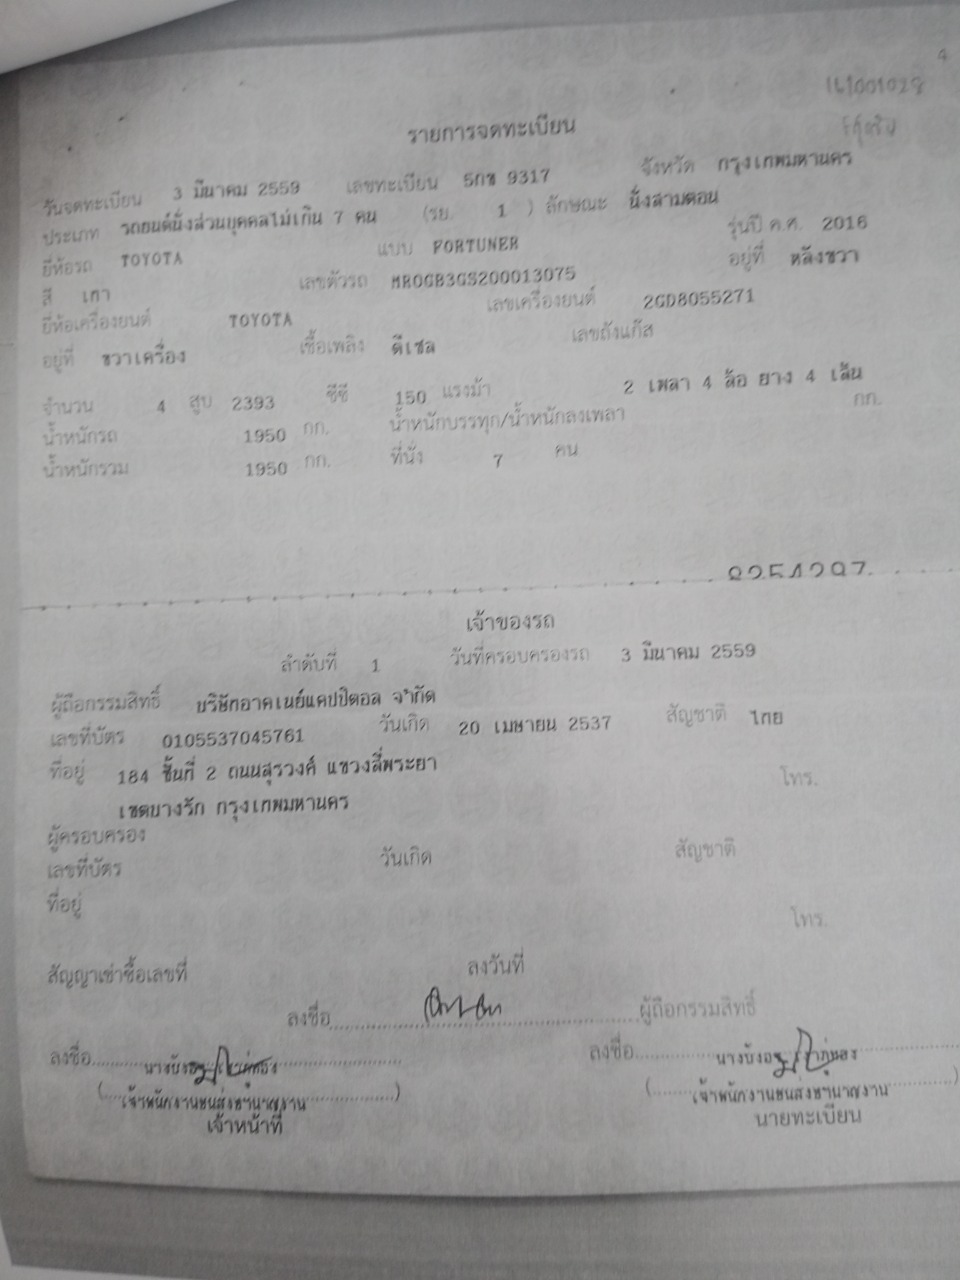 4
161001028
รายการจดทะเบียน
วันจดทะเบียน 3 มีนาคม 2559 เลขทะเบียน 5กข 9317 จังหวัด กรุงเทพมหานคร
ประเภท รถยนต์นั่งส่วนบุคคลไม่เกิน 7 คน (รย. 1 ) ลักษณะ นั่งสามตอน
ยี่ห้อรถ TOYOTA แบบ FORTUNER รุ่นปี ค.ศ. 2016
สี เทา เลขตัวรถ MR0GB3GS200013075 อยู่ที่ หลังขวา
ยี่ห้อเครื่องยนต์ TOYOTA เลขเครื่องยนต์ 2GD8055271
อยู่ที่ ขวาเครื่อง เชื้อเพลิง ดีเซล เลขถังแก๊ส
จำนวน 4 สูบ 2393 ซีซี 150 แรงม้า 2 เพลา 4 ล้อ ยาง 4 เส้น
น้ำหนักรถ 1950 กก. น้ำหนักบรรทุก/น้ำหนักลงเพลา กก.
น้ำหนักรวม 1950 กก. ที่นั่ง 7 คน
8254297
เจ้าของรถ
ลำดับที่ 1 วันที่ครอบครองรถ 3 มีนาคม 2559
ผู้ถือกรรมสิทธิ์ บริษัทอาคเนย์แคปปิตอล จำกัด
เลขที่บัตร 0105537045761 วันเกิด 20 เมษายน 2537 สัญชาติ ไทย
ที่อยู่ 184 ชั้นที่ 2 ถนนสุรวงศ์ แขวงสี่พระยา โทร.
เขตบางรัก กรุงเทพมหานคร
ผู้ครอบครอง
เลขที่บัตร วันเกิด สัญชาติ
ที่อยู่ โทร.
สัญญาเช่าซื้อเลขที่ ลงวันที่
ลงชื่อ ผู้ถือกรรมสิทธิ์
ลงชื่อ ลงชื่อ
(เจ้าพนักงานขนส่งชำนาญงาน) (เจ้าพนักงานขนส่งชำนาญงาน)
เจ้าหน้าที่ นายทะเบียน